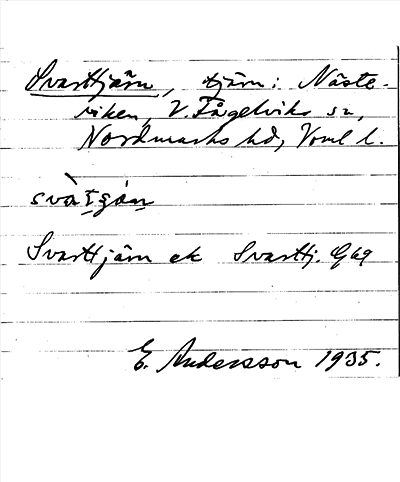 Svarttjärn, tjärn: Näste-
viken, V. Fågelviks sn,
Nordmarks hd, Vrml l.
svàtɡán
Svarttjärn ek Svarttj. G 69
E. Andersson 1935.